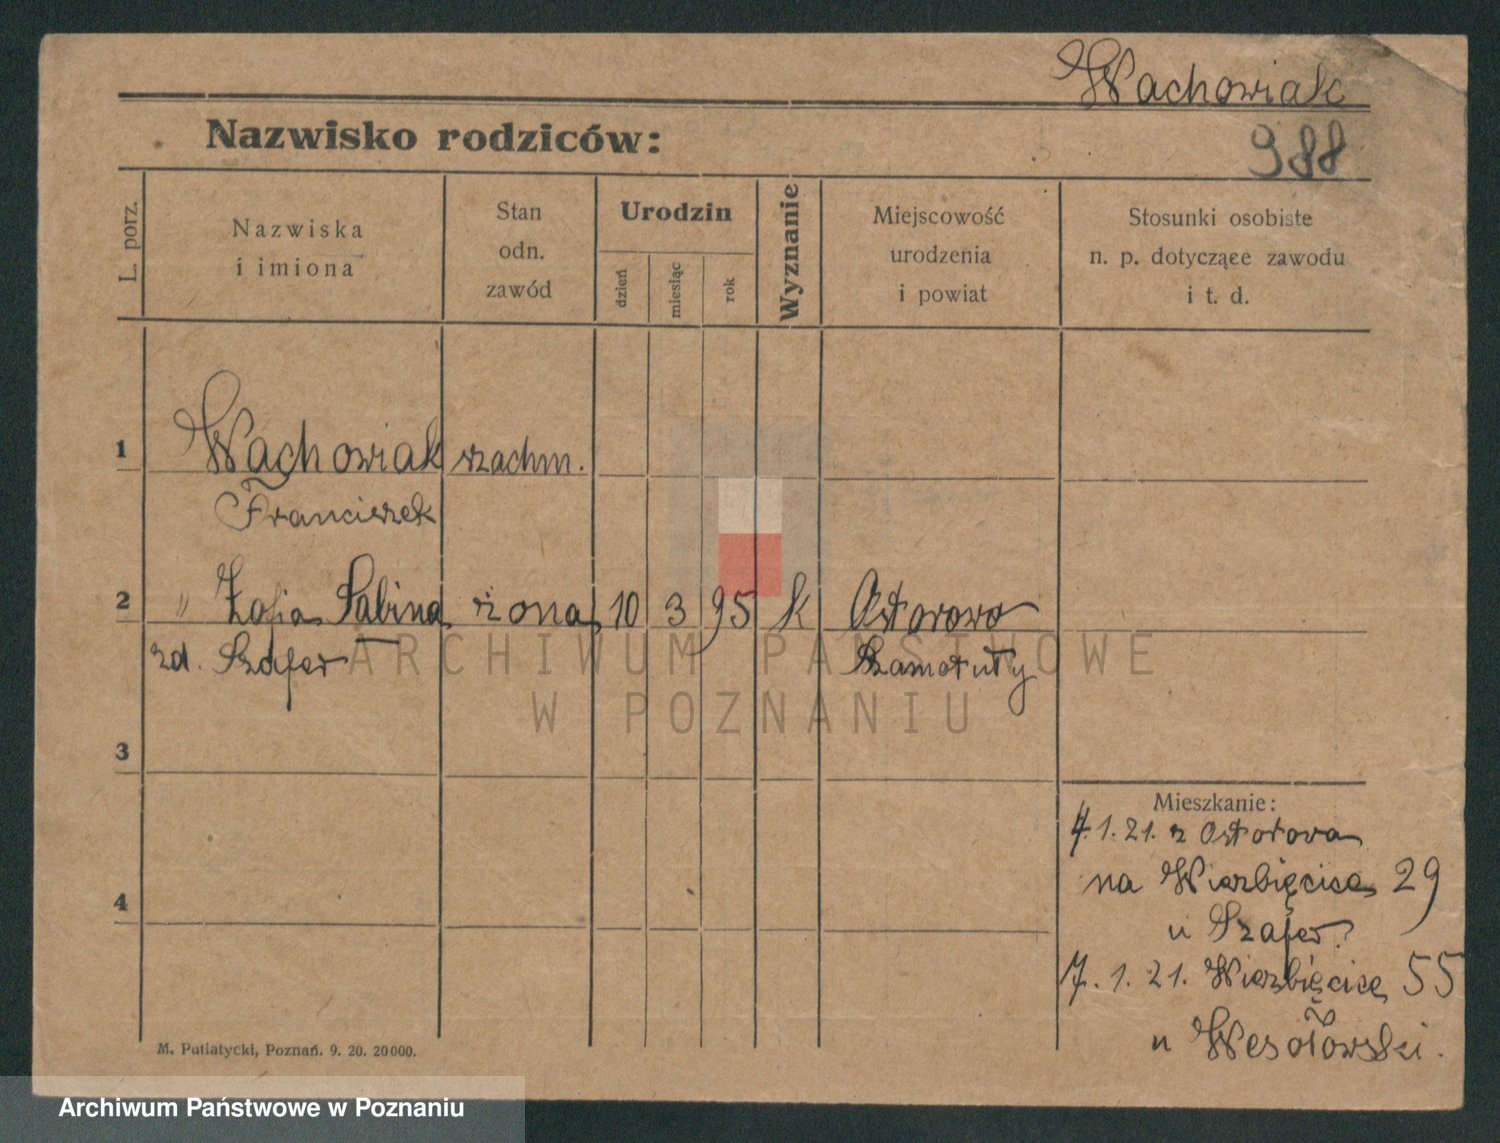 Wachowiak
988
Nazwisko rodziców:
L. porz.
Nazwiska
i imiona
Stan
odn.
zawód
Urodzin
dzień
miesiąc
rok
Wyznanie
Miejscowość
urodzenia
i powiat
Stosunki osobiste
n. p. dotyczące zawodu
i t. d.
1
Wachowiak wachm.
Franciszek
2 " Zofia Sabina żona 10 3 95 k Ostrowo
zd. Szafer Szamotuły
ARCHIWUM PAŃSTWOWE
W POZNANIU
3
4
Mieszkanie:
1.21. z
na Wierzbięcice 29
u Szafer
1.21. Wierzbięcice 55
u Wesołowski.
M. Putiatycki, Poznań. 9. 20. 20000.
Archiwum Państwowe w Poznaniu